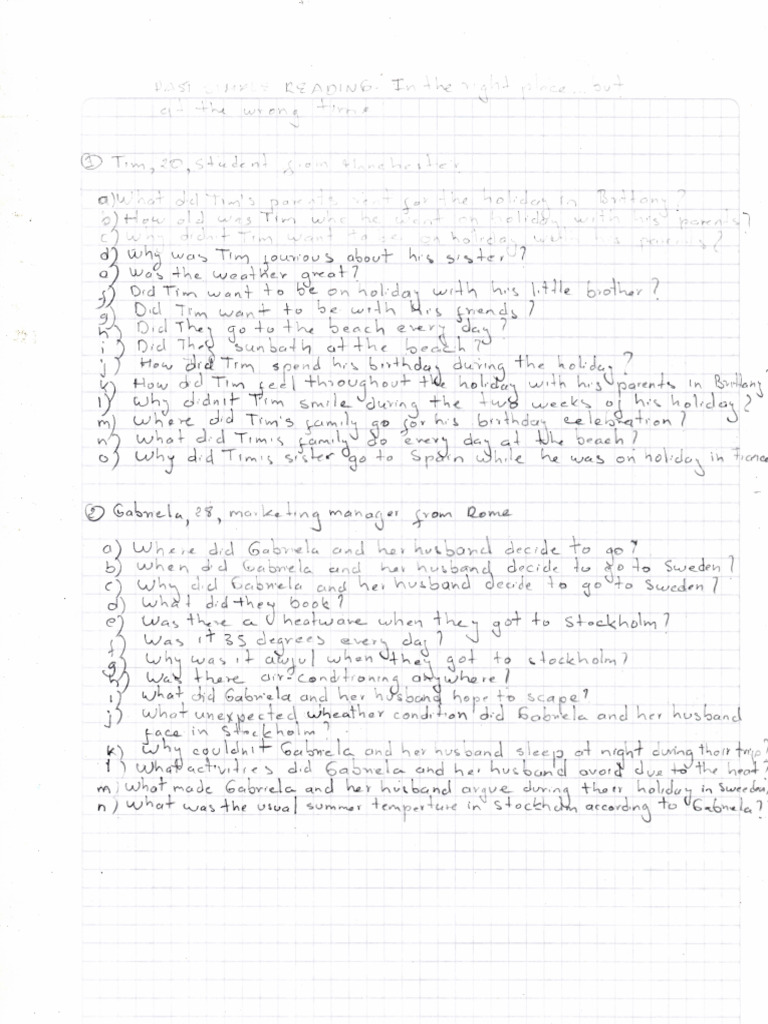 PAST SIMPLE READING: In the right place... but
at the wrong time
① Tim, 20, student from Manchester
a) What did Tim's parents rent for the holiday in Brittany?
b) How old was Tim whe he went on holiday with his parents?
c) Why didn't Tim want to be on holiday with his parents?
d) Why was Tim fourious about his sister?
a) Was the weather great?
f) Did Tim want to be on holiday with his little brother?
g) Did Tim want to be with his friends?
h) Did They go to the beach every day?
i) Did They sunbath at the beach?
j) How did Tim spend his birthday during the holiday?
k) How did Tim feel throughout the holiday with his parents in Brittany?
l) Why didn't Tim smile during the two weeks of his holiday?
m) Where did Tim's family go for his birthday celebration?
n) What did Tim's family do every day at the beach?
o) Why did Tim's sister go to Spain while he was on holiday in France
② Gabriela, 28, marketing manager from Rome
a) Where did Gabriela and her husband decide to go?
b) When did Gabriela and her husband decide to go to Sweden?
c) Why did Gabriela and her husband decide to go to Sweden?
d) What did they book?
e) Was there a heatware when they got to Stockholm?
f) Was it 35 degrees every day?
g) Why was it awful when they got to stockholm?
h) Was there air-conditioning anywhere?
i) What did Gabriela and her husband hope to scape?
j) What unexpected wheather condition did Gabriela and her husband
face in Stockholm?
k) Why couldn't Gabriela and her husband sleep at night during their trip?
l) What activities did Gabriela and her husband avoid due to the heat?
m) What made Gabriela and her husband argue during their holiday in Sweeden?
n) What was the usual summer temperture in Stockholm according to Gabriela?